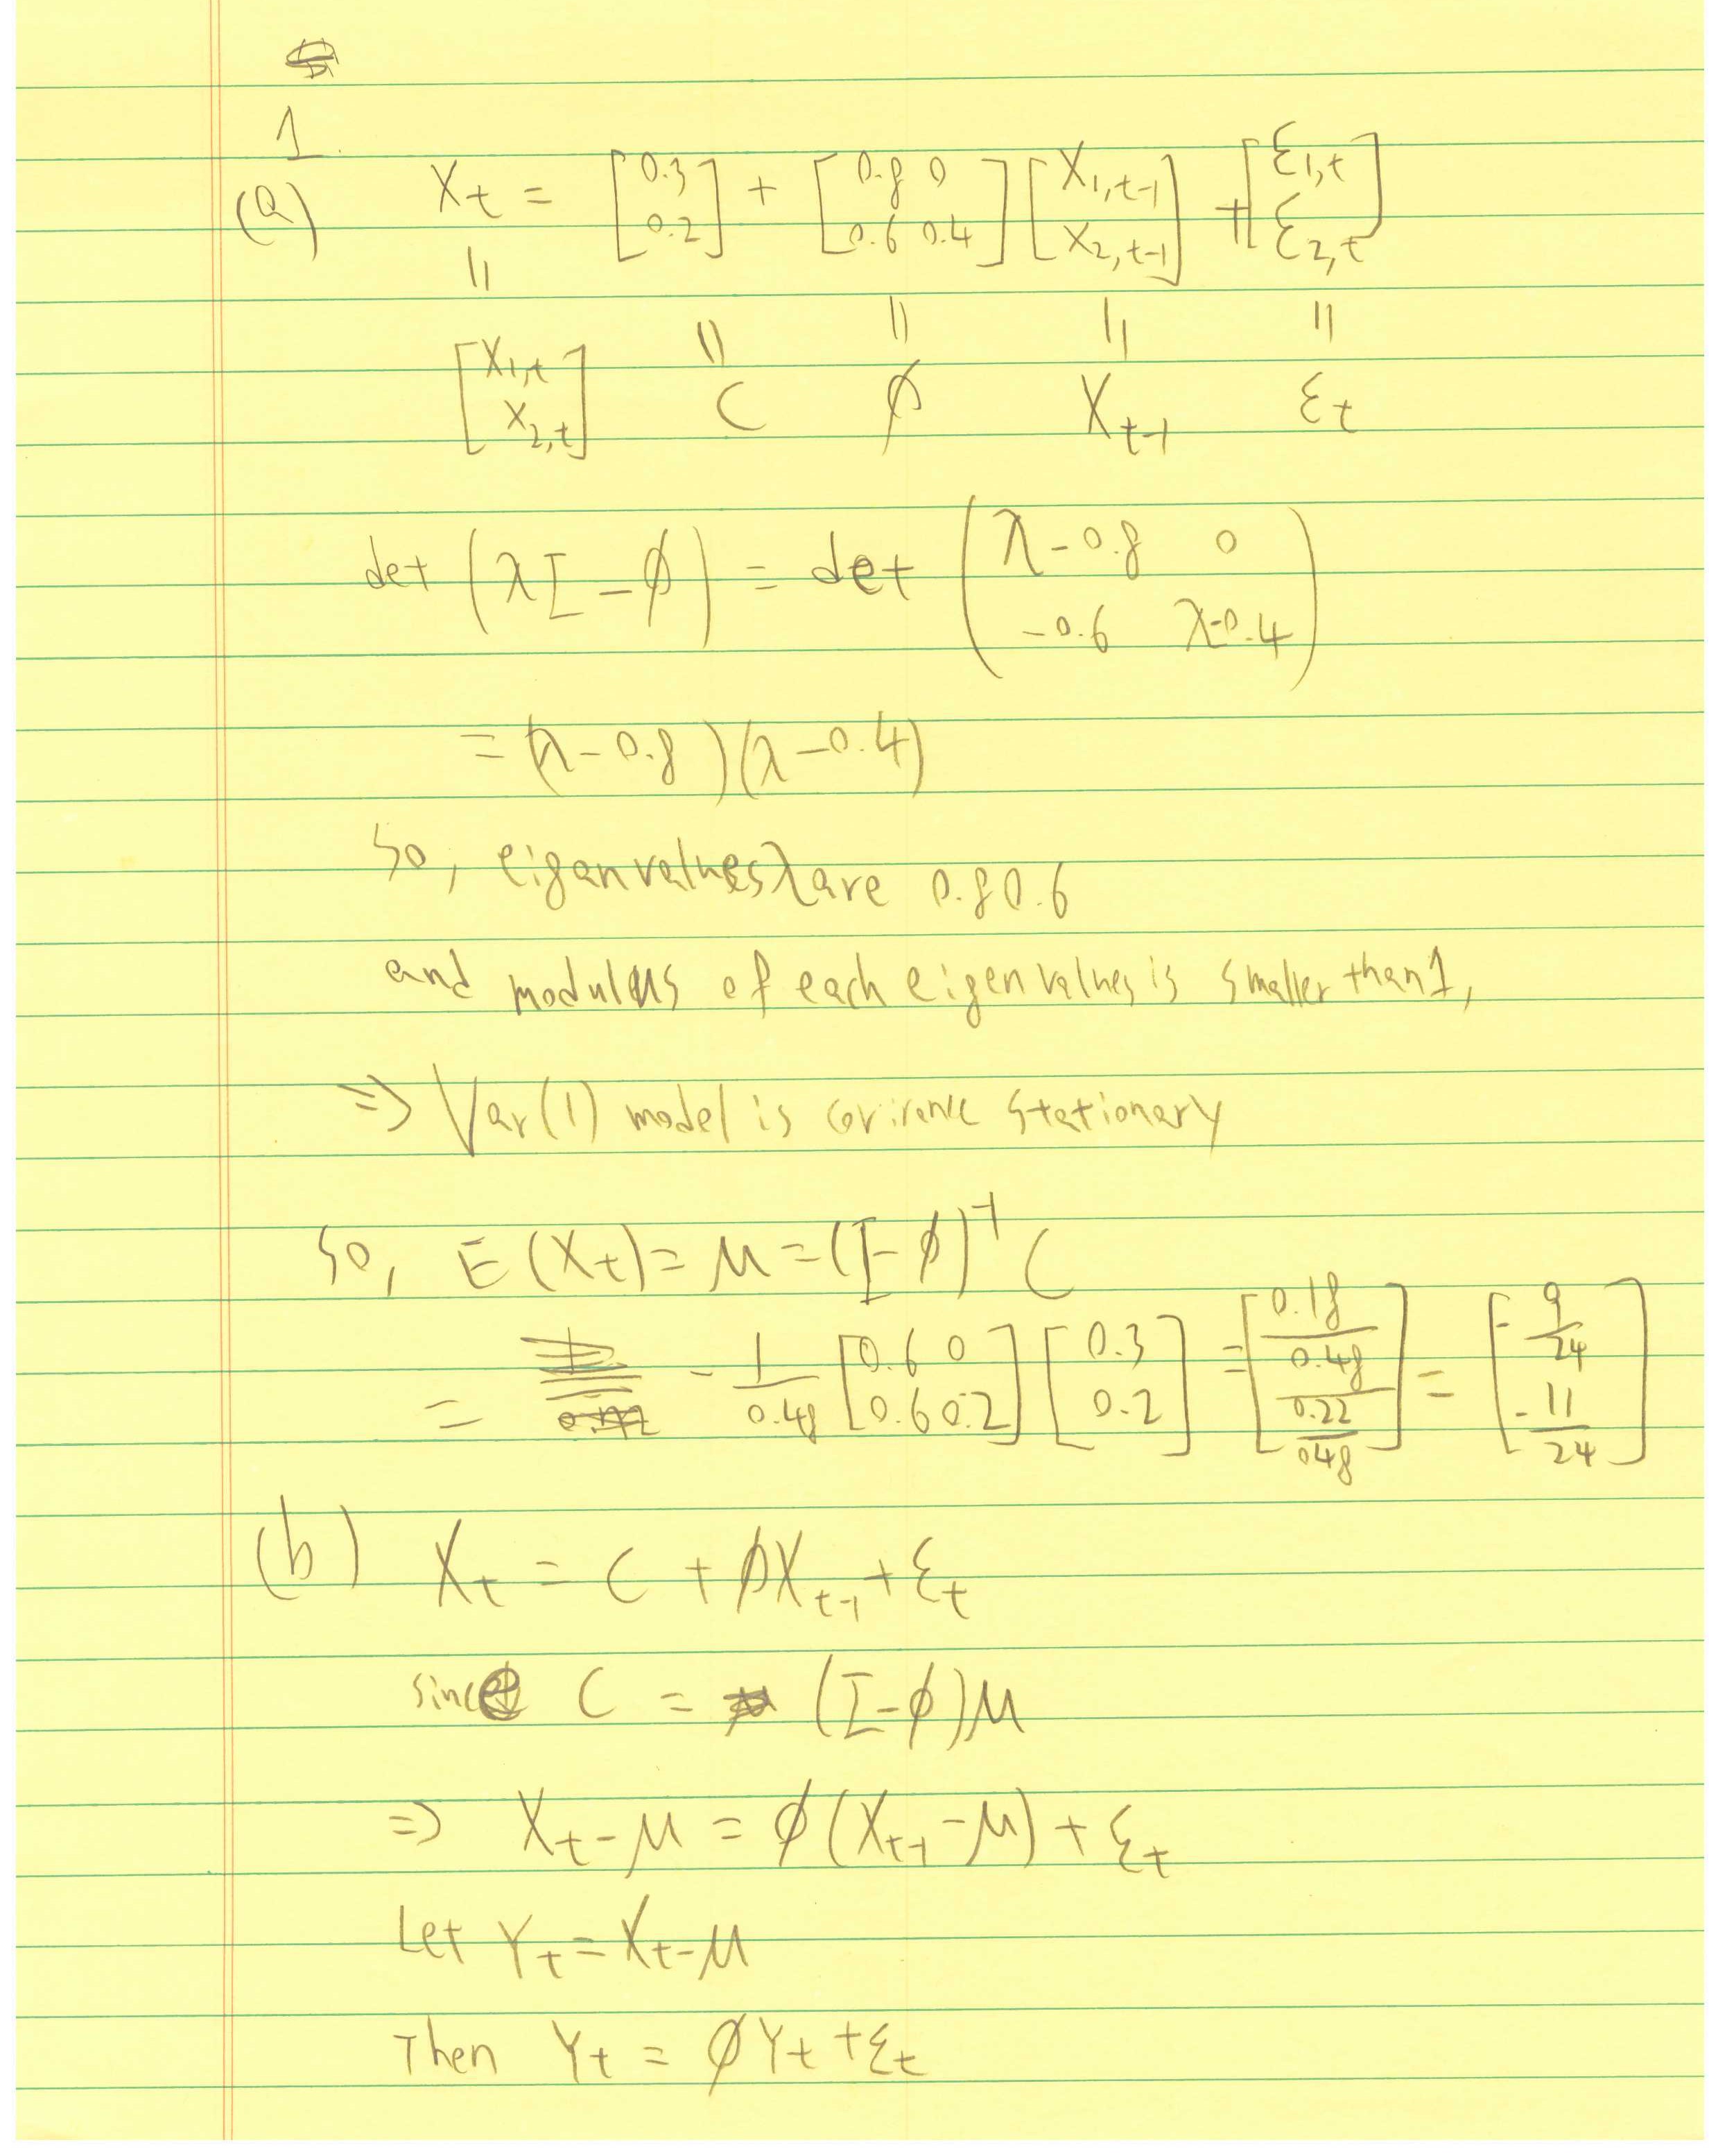 1.
(a) Xt = [0.3 0.2] + [0.8 0 0.6 0.4] [X1,t-1 X2,t-1] + [ε1,t ε2,t]
|| || || || ||
[X1,t X2,t] C ϕ Xt-1 εt
det (λI - ϕ) = det (λ-0.8 0 -0.6 λ-0.4)
= (λ-0.8)(λ-0.4)
So, eigenvalues λ are 0.8 0.6
and modulus of each eigenvalues is smaller than 1,
=> Var(1) model is covirance stationary
So, E(Xt) = μ = (I-ϕ)^-1 C
= - 1/0.48 [0.6 0 0.6 0.2] [0.3 0.2] = [0.18/0.48 0.22/0.48] = [-9/24 -11/24]
(b) Xt = C + ϕXt-1 + εt
since C = (I-ϕ)μ
=> Xt-μ = ϕ(Xt-1-μ) + εt
Let Yt = Xt-μ
Then Yt = ϕYt + εt